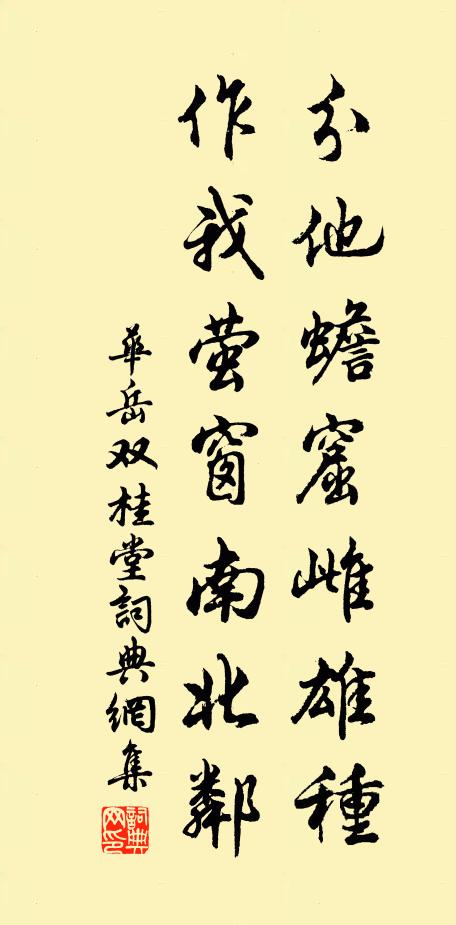 分他蟾窟雌雄種
作我萤窗南北鄰
華岳双桂堂詞典網集
詞典网印